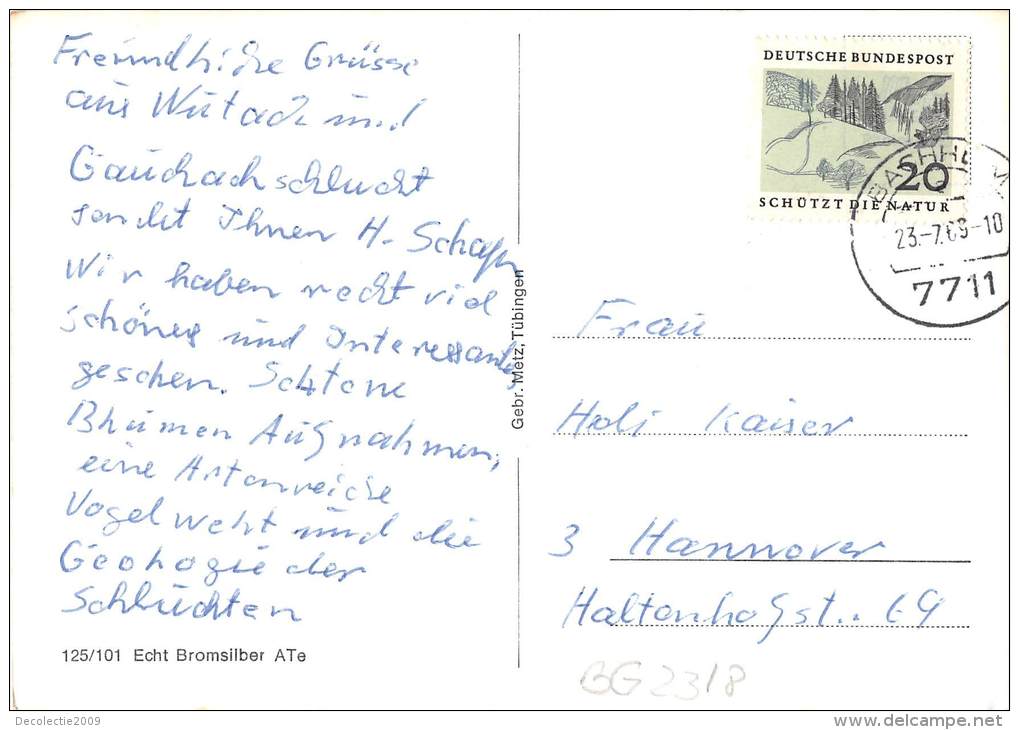 Freundliche Grüsse
aus Wutach und
Gauchachschlucht
sendet Ihnen H.
Wir haben recht viel
schönes und Interessantes
gesehen. Seltene
Blumen Aufnahmen,
eine Artenreiche
Vogelwelt und die
Geologie der
Schluchten
125/101 Echt Bromsilber ATe
Gebr. Metz, Tübingen
DEUTSCHE BUNDESPOST
20
SCHÜTZT DIE NATUR
23.-7.69-10
7711
Frau
Kaiser
3 Hannover
Haltenhofstr. 69
BG2318
Decolectie2009
www.delcampe.net